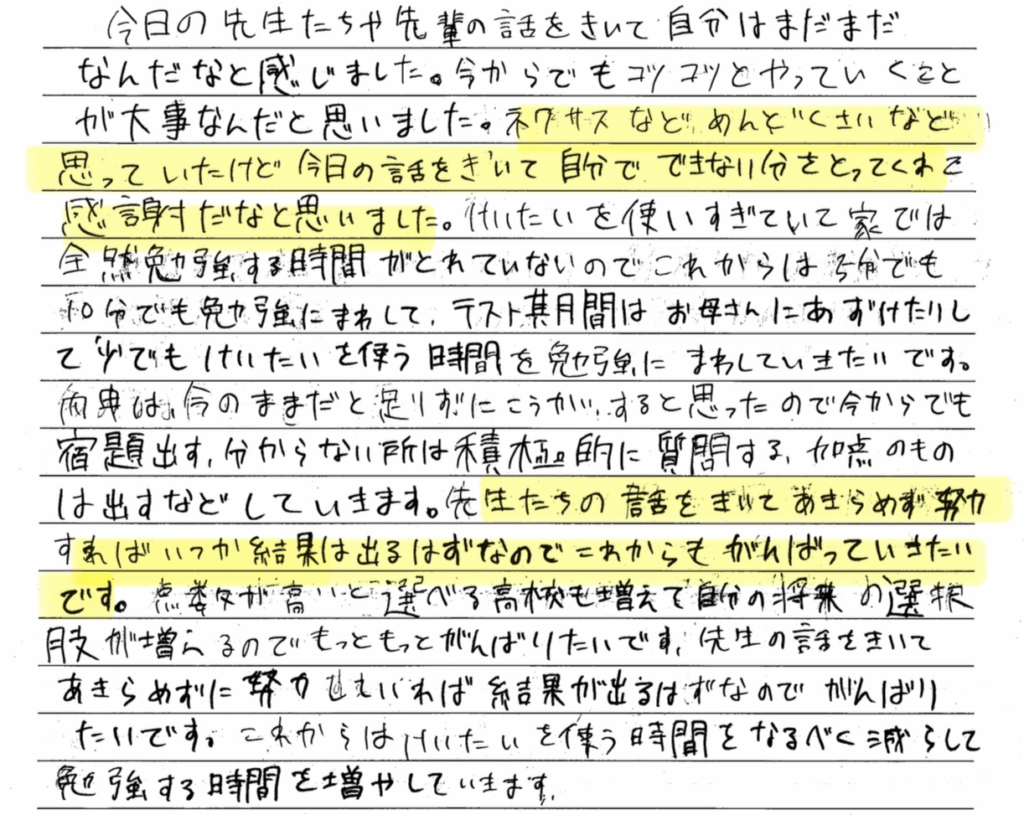 今日の先生たちや先輩の話をきいて自分はまだまだ
なんだなと感じました。今からでもコツコツとやっていくこと
が大事なんだと思いました。ネクサスなど、めんどくさいなど
思っていたけど今日の話をきいて自分でできない分をとってくれて
感謝だなと思いました。けいたいを使いすぎていて家では
全然勉強する時間がとれていないのでこれからは5分でも
10分でも勉強にまわして、テスト期間はお母さんにあずけたりし
て少でもけいたいを使う時間を勉強にまわしていきたいです。
内申は、今のままだと足りずにこうかいすると思ったので今からでも
宿題出す、分からない所は積極的に質問する、加点のもの
は出すなどしていきます。先生たちの話をきいてあきらめず努力
すればいつか結果は出るはずなのでこれからもがんばっていきたい
です。点数が高いと選べる高校も増えて自分の将来の選択
肢が増えるのでもっともっとがんばりたいです、先生の話をきいて
あきらめずに努力 いれば結果が出るはずなのでがんばり
たいです。これからはけいたいを使う時間をなるべく減らして
勉強する時間を増やしていきます。